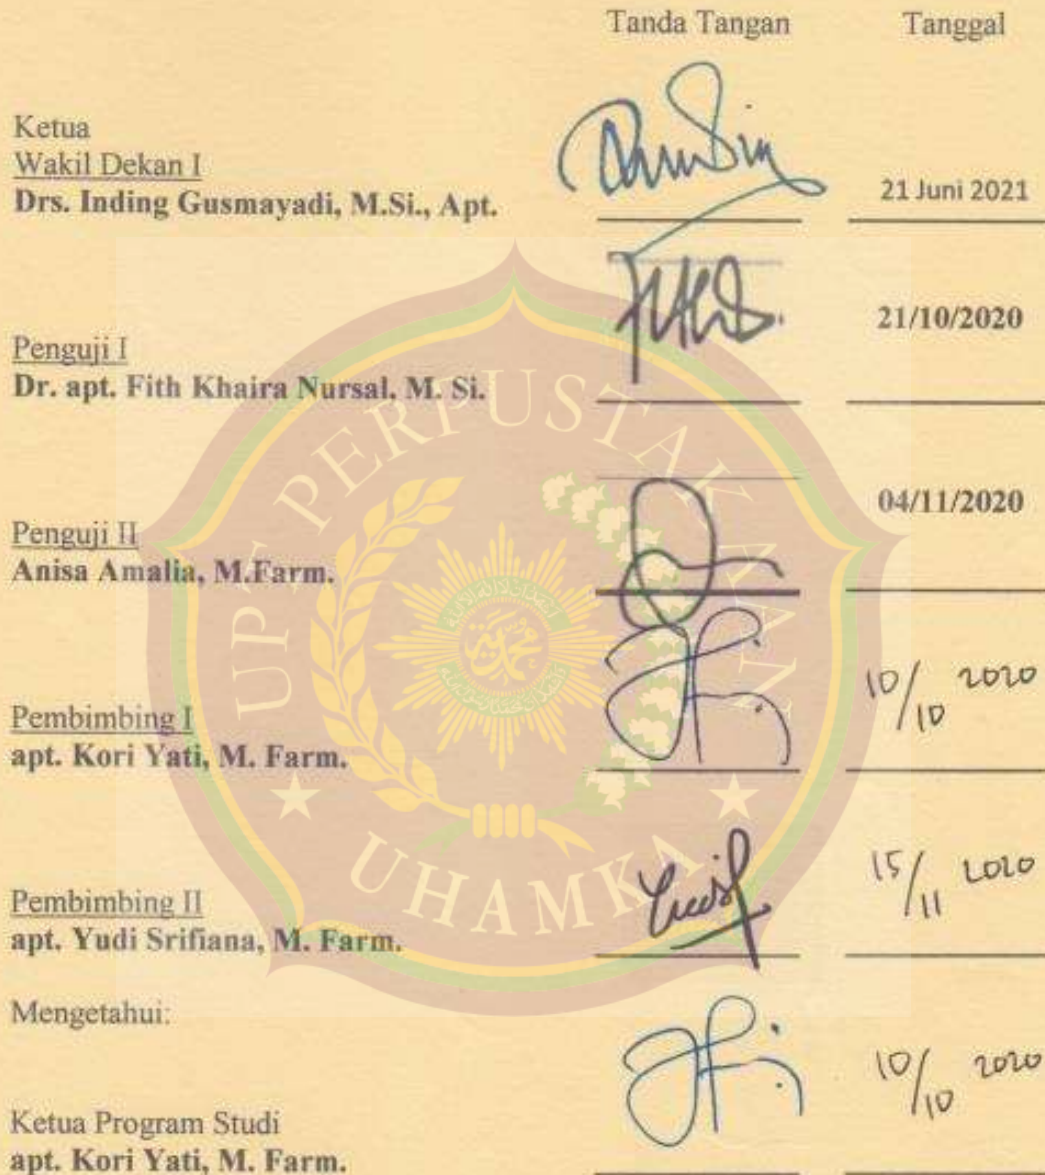 Tanda Tangan Tanggal
Ketua
Wakil Dekan I
Drs. Inding Gusmayadi, M.Si., Apt. 21 Juni 2021
21/10/2020
Penguji I
Dr. apt. Fith Khaira Nursal, M. Si.
04/11/2020
Penguji II
Anisa Amalia, M.Farm.
10/10 2020
Pembimbing I
apt. Kori Yati, M. Farm.
15/11 2020
Pembimbing II
apt. Yudi Srifiana, M. Farm.
Mengetahui:
10/10 2020
Ketua Program Studi
apt. Kori Yati, M. Farm.
UPT PERPUSTAKAAN
UHAMKA